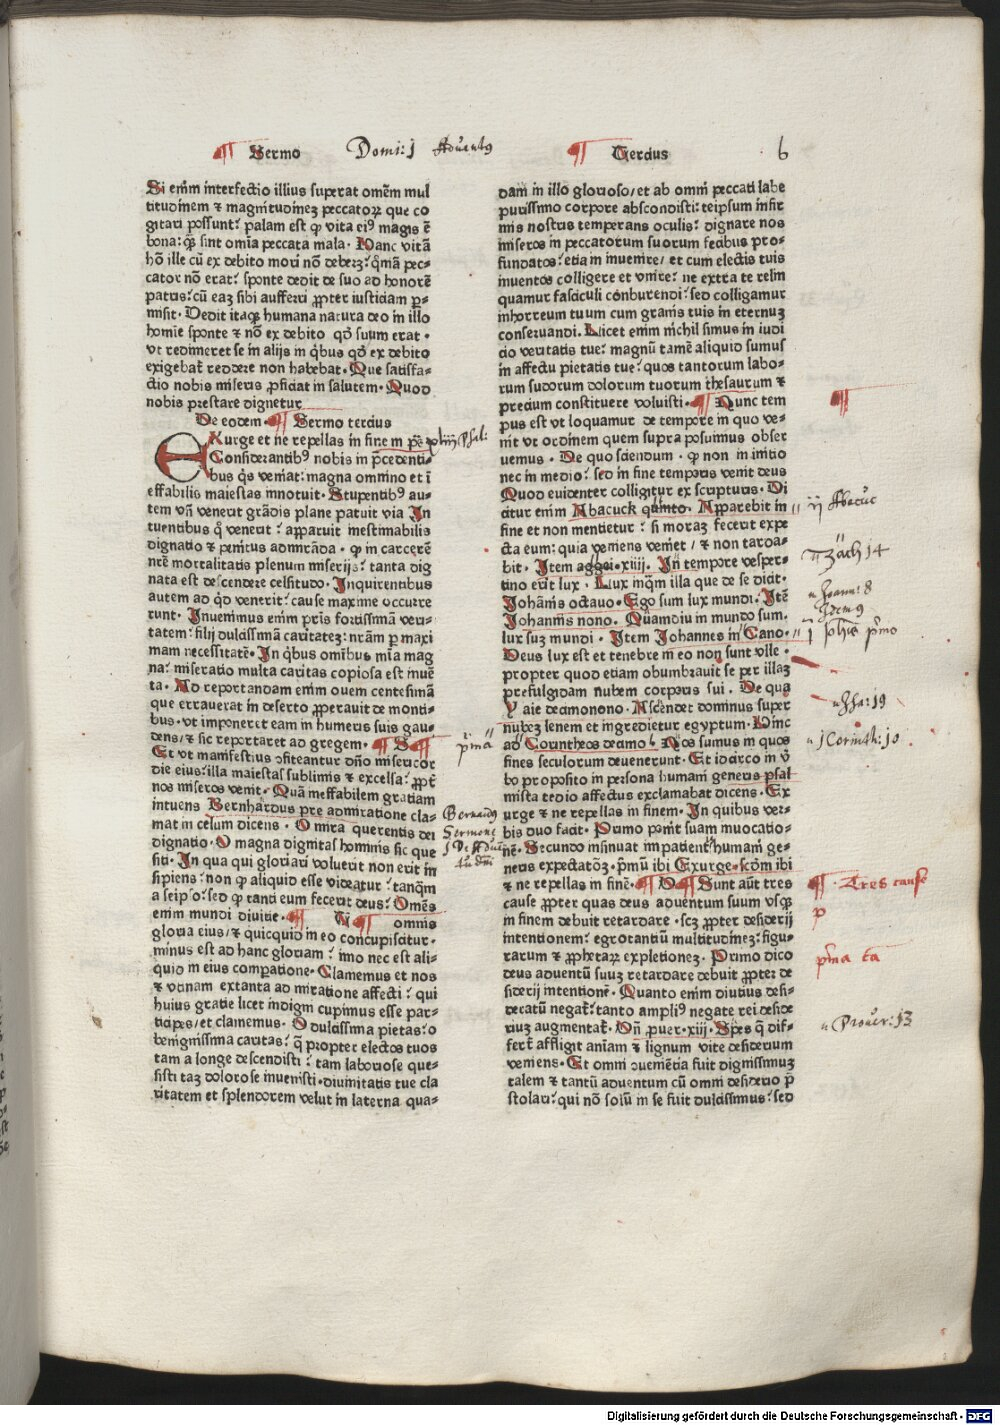 ¶ Sermo Domi: j Aduentꝰ ¶ Tercius 6
Si enim interfectio illius superat omēm mul
titudinem ⁊ magnitudinez peccatoꝝ que co
gitari possunt? palam est ꝙ vita eiꝰ magis ē
bona: ꝙ̄ sint omīa peccata mala. Hanc vitā
hō ille cū ex debito mori nō deberz? qm̄a pec-
cator nō erat? sponte dedit de suo ad honorē
patris? cū eaz sibi aufferri ꝓpter iusticiam p̱-
misit. Dedit itaqꝫ humana natura deo in illo
homīe sponte ⁊ nō ex debito qd̓ suum erat.
vt redimeret se in alijs in qͥbus qd̓ ex debito
exigebat̄ reddere non habebat. Que satisfa-
ctio nobis miseris ꝓficiat in salutem. Quod
nobis prestare dignetur
De eodem. ¶ Sermo tercius
EXurge et ne repellas in fine in ps̄. xliij Psal:
Considerantibꝰ nobis in p̄cedenti-
bus qͥs veniat: magna omnino et ī
effabilis maiestas innotuit. Stupentibꝰ au-
tem vn̄ venerit grādis plane patuit via In
tuentibus qͦ venerit? apparuit inestimabilis
dignatio ⁊ penitus admirāda. ꝙ in carcerē
nr̄e mortalitatis plenum miserijs? tanta dig
nata est descendere celsitudo. Inquirentibus
autem ad qd̓ venerit? cause maxime occurre
runt. Inuenimus enim pr̄is fortissimā veri-
tatem? filij dulcissimā caritatez: nrām ꝑ maxi
mam necessitatē. In qͥbus omībus mīa mag
na? miseratio multa caritas copiosa est inuē
ta. Ad reportandam enim ouem centesimā
que errauerat in deserto ꝓperauit de monti-
bus. vt imponeret eam in humeris suis gau
dens/ ⁊ sic reportaret ad gregem. ¶ S¶ p̄ma
Et vt manifestius ꝯfiteantur dn̄o misericor
die eius? illa maiestas sublimis ⁊ excelsa? ꝓpt̄
nos miseros venit. Quā ineffabilem gratiam
intuens Bernhardus pre admiratione cla-
mat in celum dicens. O mira querentis dei
dignatio. O magna dignitas hominis sic que
siti. In qua qui gloriari voluerit non erit in
sipiens? non ꝙ aliquid esse videatur? tanqm̄
a seipso? sed ꝙ tanti eum fecerit deus? Omēs
enim mundi diuitie. ¶ V¶ omnis
gloria eius/ ⁊ quicquid in eo concupiscitur.
minus est ad hanc gloriam? imo nec est ali-
quid in eius comparatione. Clamemus et nos
⁊ vtinam extanta admiratione affecti? qui
huius gratie licet indigni cupimus esse par-
ticipes/ et clamemus. O dulcissima pietas? o
benignissima caritas? q̄ propter electos tuos
tam a longe descendisti? tam laboriose que-
sisti taz dolorose inuenisti. diuinitatis tue cla
ritatem et splendorem velut in laterna qua-
Bernardꝰ
Sermone
j De Aduē
tu dn̄i
dam in illo glorioso/ et ab omni peccati labe
purissimo corpore abscondisti: teipsum infir
mis nostris temperans oculis? dignare nos
miseros in peccatorum suorum fecibus pro-
fundatos? etiam inuenire/ et cum electis tuis
inuentos colligere et vnire? ne extra te relin
quamur fasciculi comburendi? sed colligamur
inhorreum tuum cum granis tuis in eternuz
conseruandi. Licet enim nichil simus in iudi
cio veritatis tue? magnū tamē aliquid sumus
in affectu pietatis tue? quos tantorum labo-
rum sudorum dolorum tuorum thesaurum ⁊
precium constituere voluisti. ¶ Nunc tem
pus est vt loquamur de tempore in quo ve-
nit vt ordinem quem supra posuimus obser
uemus. De quo sciendum. ꝙ non in initio
nec in medio? sed in fine temporis venit deus
Quod euidenter colligitur ex scripturis. Di
citur enim Abacuck quinto. Apparebit in
fine et non mentietur? si moraz fecerit expe
cta eum: quia veniens veniet/ ⁊ non tarda-
bit. Item aggei. xiiij. In tempore vesper-
tino erit lux. Lux inqͣm illa que de se dicit.
Johānis octauo. Ego sum lux mundi. Itē
Johannis nono. Quamdiu in mundo sum.
lux suz mundi. Item Johannes in Cano.
Deus lux est et tenebre in eo non sunt vlle.
propter quod etiam obumbrauit se per illaz
prefulgidam nubem corporis sui. De qua
Ysaie decimonono. Ascendet dominus super
nubez leuem et ingredietur egyptum. Hinc
ad Corintheos decimo. Nos sumus in quos
fines seculorum deuenerunt. Et idcirco in ꝟ
bo proposito in persona humani generis psal
mista tedio affectus exclamabat dicens. Ex
urge ⁊ ne repellas in finem. In quibus ver-
bis duo facit. Primo ponit suam inuocatio-
nē. Secundo insinuat impatientē humani ge-
neris expectatōz. p̄mū ibi Exurge. scd̄m ibi
⁊ ne repellas in finē. ¶ O¶ Sunt aūt tres
cause ꝓpter quas deus aduentum suum vsqꝫ
in finem debuit retardare. scz ꝓpter desiderij
intentionem? egrotantiū multitudinez? figu-
rarum ⁊ ꝓphetaꝝ expletionez. Primo dico
deus aduentū suuz retardare debuit ꝓpter de
siderij intentionē. Quanto enim diutius desi-
deratū negat̄? tanto ampliꝰ negate rei deside
riuz augmentat̄. Vn̄ ꝓuer. xiij. Spes q̄ dif-
fert̄ affligit aniam ⁊ lignum vite desiderium
veniens. Et omni ꝯuenientia fuit dignissimuz
talem ⁊ tantū aduentum cū omni desiderio p̄
stolari? qui nō solū in se fuit dulcissimus? sed
¶
ij Abacuc
Zach 14
Joann: 8
Idem 9
j Johis prmo
Esa: 19
j Corinth: 10
¶. Tres cause
p
p̄ma cā
Prouer: 13
Digitalisierung gefördert durch die Deutsche Forschungsgemeinschaft - DFG